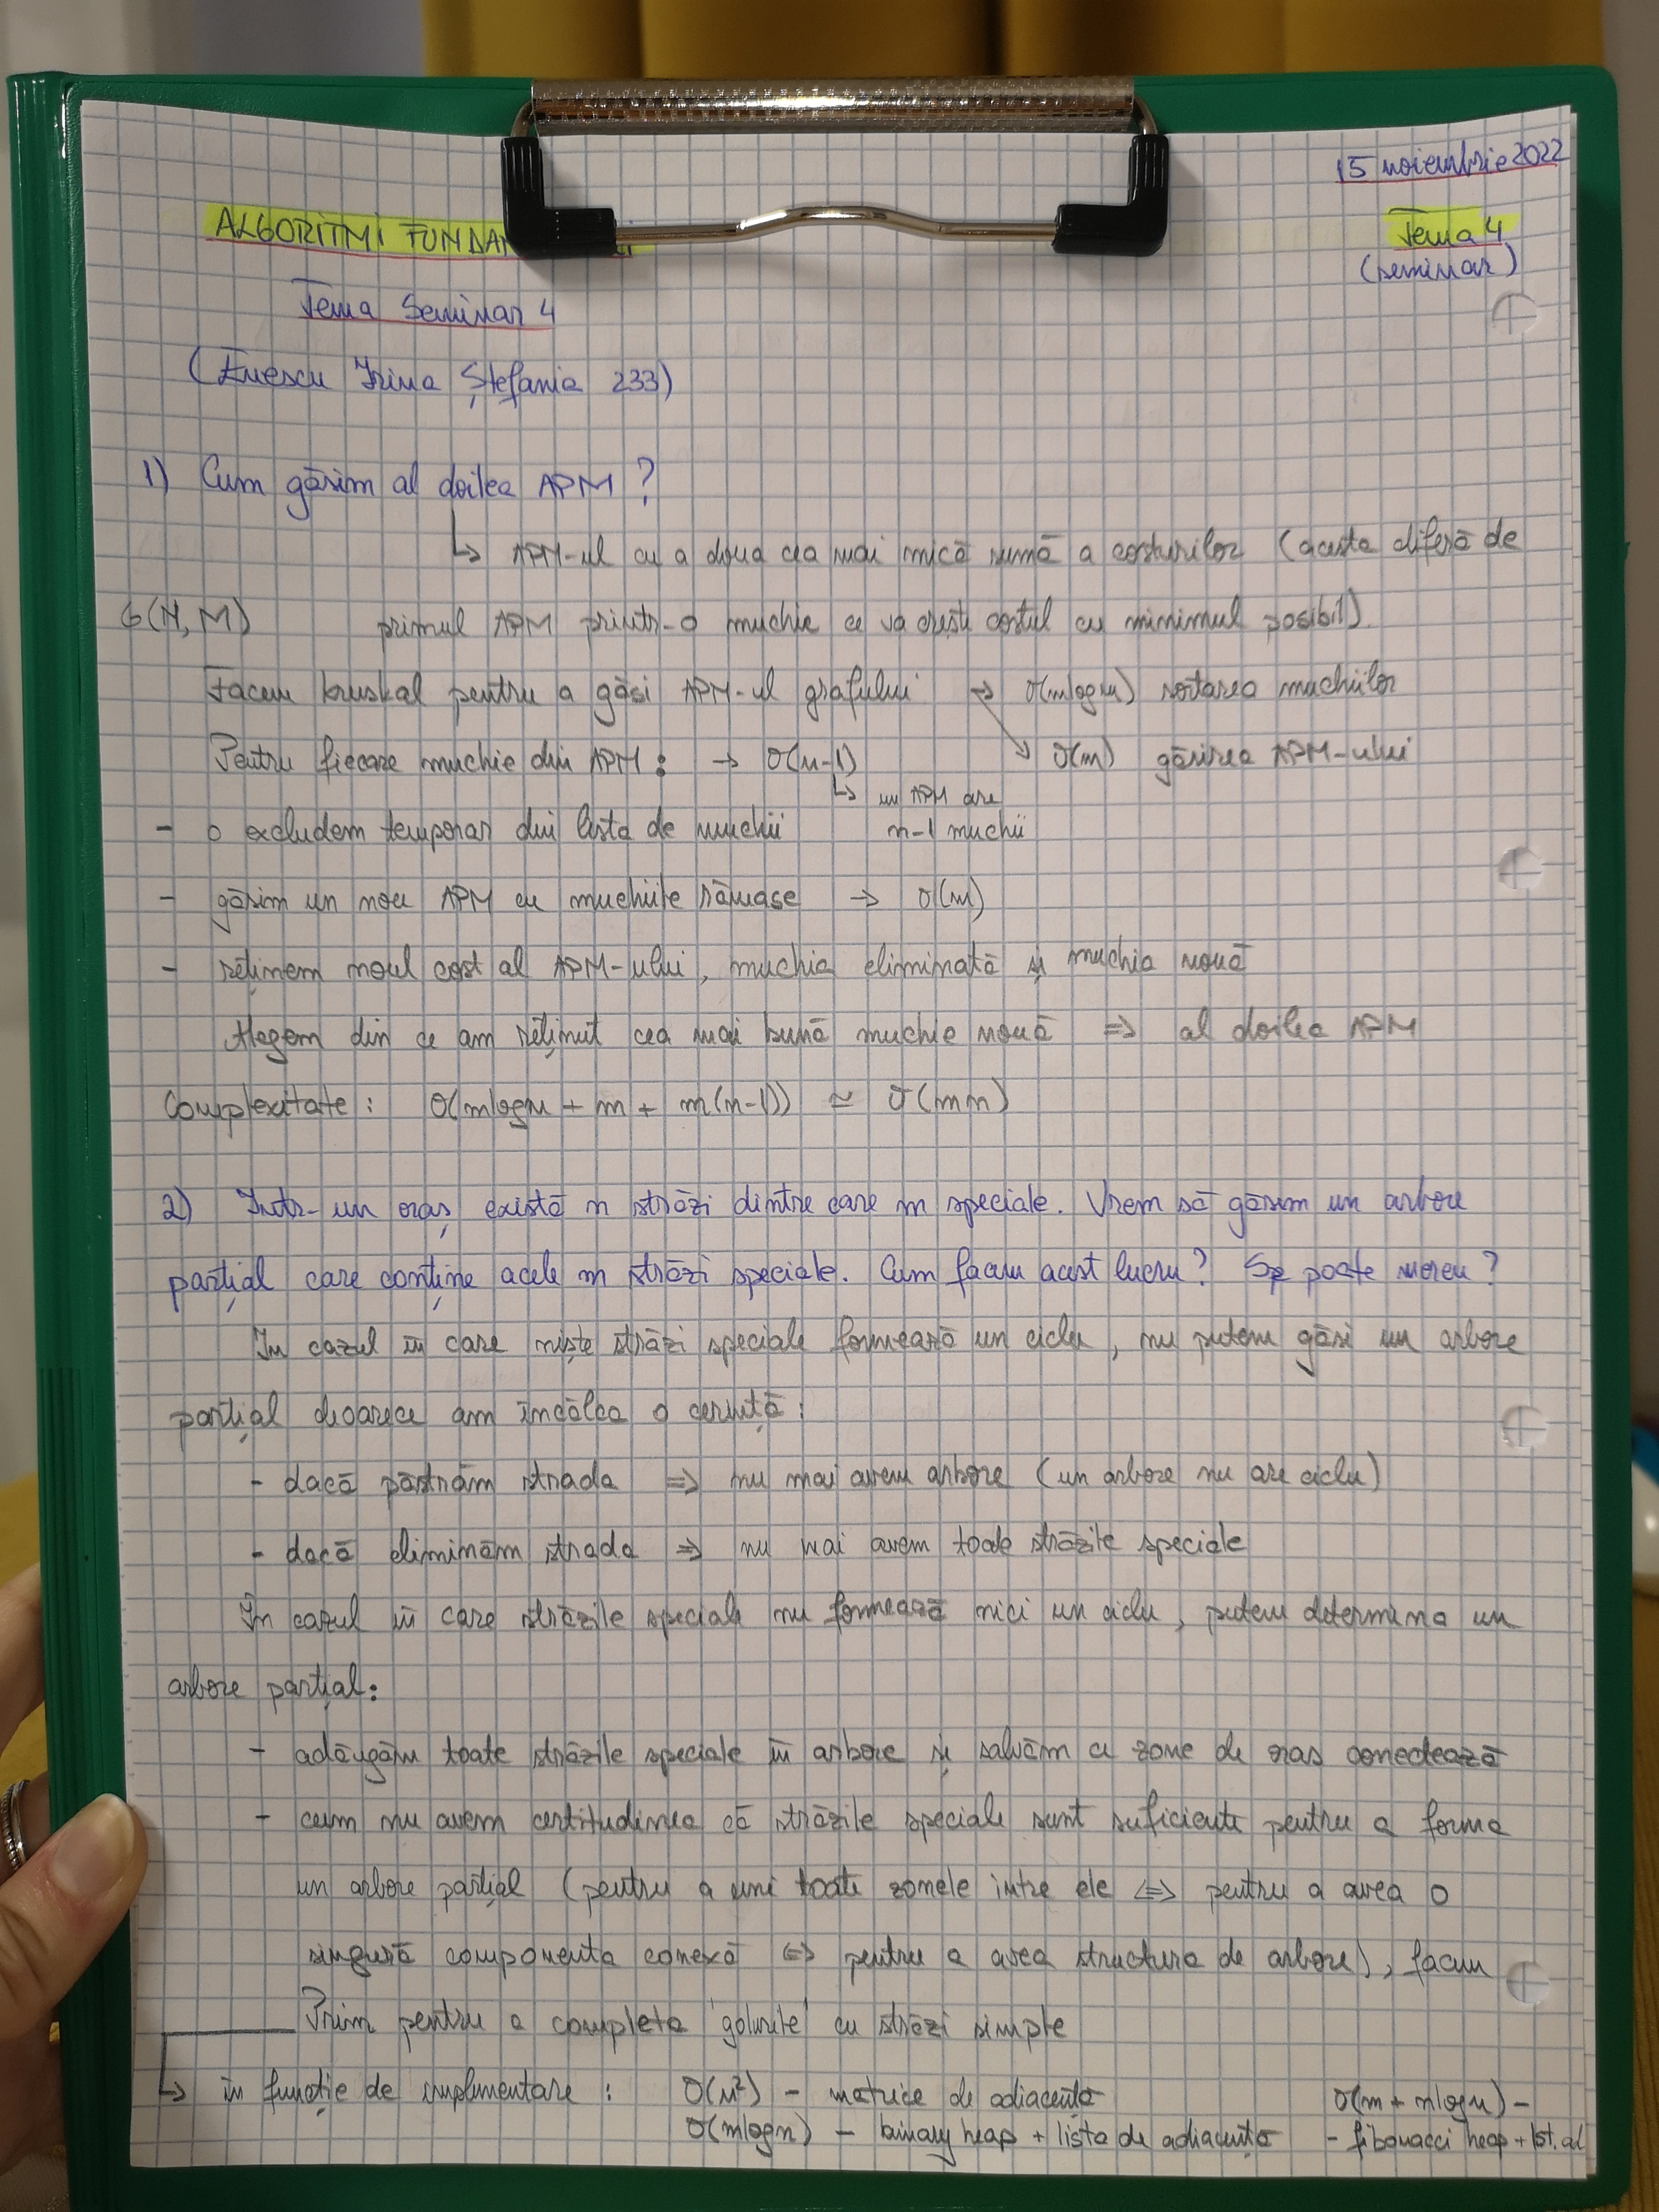 15 noiembrie 2022
ALGORITMI
Tema 4
(seminar)
Tema Seminar 4
(Enescu Irina Ștefania 233)
1) Cum găsim al doilea APM ?
↳ APM-ul cu a doua cea mai mică sumă a costurilor (acesta diferă de
G(N, M) primul APM printr-o muchie ce va crește costul cu minimul posibil).
Facem kruskal pentru a găsi APM-ul grafului → O(mlogn) sortarea muchiilor
Pentru fiecare muchie din APM : → O(n-1) ↘ O(m) găsirea APM-ului
↳ un APM are
- o excludem temporar din lista de muchii n-1 muchii
- găsim un nou APM cu muchiile rămase → O(m)
- reținem noul cost al APM-ului, muchia eliminată și muchia nouă
Alegem din ce am reținut cea mai bună muchie nouă => al doilea APM
Complexitate : O(mlogn + m + m(n-1)) ≃ O(mn)
2) Într-un oraș există n străzi dintre care m speciale. Vrem să găsim un arbore
parțial care conține acele m străzi speciale. Cum facem acest lucru? Se poate mereu ?
În cazul în care niște străzi speciale formează un ciclu, nu putem găsi un arbore
parțial deoarece am încălca o cerință :
- dacă păstrăm strada => nu mai avem arbore (un arbore nu are ciclu)
- dacă eliminăm strada => nu mai avem toate străzile speciale
În cazul în care străzile speciale nu formează nici un ciclu, putem determina un
arbore parțial :
- adăugăm toate străzile speciale în arbore și salvăm ce zone de oraș conectează
- cum nu avem certitudinea că străzile speciale sunt suficiente pentru a forma
un arbore parțial (pentru a uni toate zonele între ele <=> pentru a avea o
singură componenta conexă <=> pentru a avea structura de arbore), facem
Prim pentru a completa 'golurile' cu străzi simple
↳ în funcție de implementare : O(n²) - matrice de adiacența O(m + nlogn) -
O(mlogn) - binary heap + lista de adiacența - fibonacci heap + lst. ad